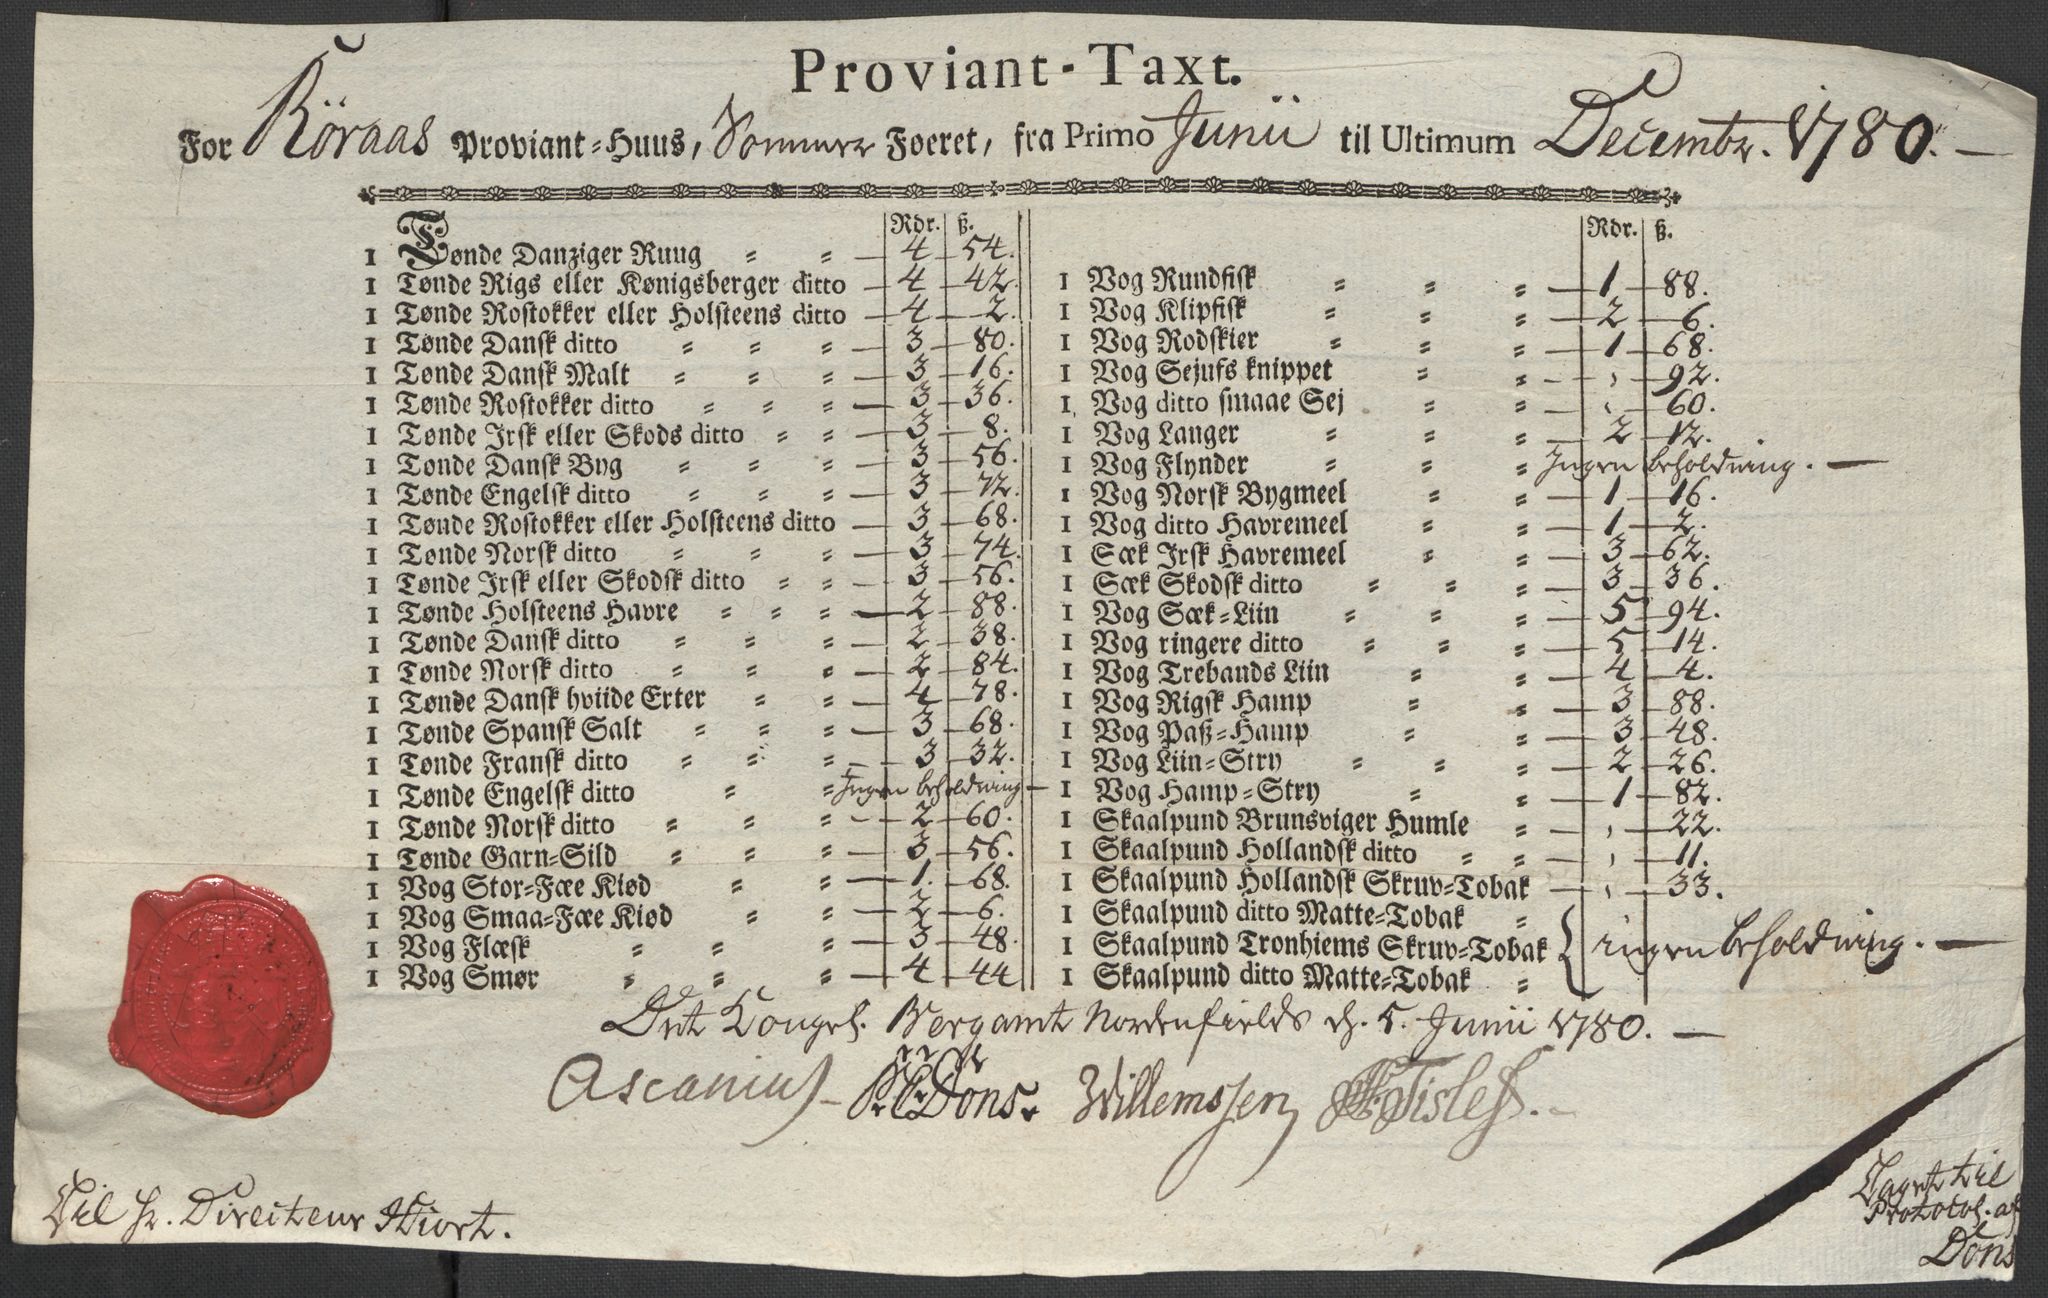 Proviant-Taxt.
For Röraas Proviant-Huus, Sommer Foeret, fra Primo Junii til Ultimum Decembr. 1780.
Rdr. ß.
1 Tønde Danziger Ruug 4 54.
1 Tønde Rigs eller Kønigsberger ditto 4 42.
1 Tønde Rostokker eller Holsteens ditto 4 2.
1 Tønde Dansk ditto 3 80.
1 Tønde Dansk Malt 3 16.
1 Tønde Rostokker ditto 3 36.
1 Tønde Irsk eller Skods ditto 3 8.
1 Tønde Dansk Byg 3 56.
1 Tønde Engelsk ditto 3 72.
1 Tønde Rostokker eller Holsteens ditto 3 68.
1 Tønde Norsk ditto 3 74.
1 Tønde Irsk eller Skodsk ditto 3 56.
1 Tønde Holsteens Havre 2 88.
1 Tønde Dansk ditto 2 38.
1 Tønde Norsk ditto 2 84.
1 Tønde Dansk hviide Erter 4 78.
1 Tønde Spansk Salt 3 68.
1 Tønde Fransk ditto 3 32.
1 Tønde Engelsk ditto Ingen beholdning
1 Tønde Norsk ditto 2 60.
1 Tønde Garn-Sild 3 56.
1 Vog Stor-Fæe Kiød 1. 68.
1 Vog Smaa-Fæe Kiød 2 6.
1 Vog Flæsk 3 48.
1 Vog Smør 4 44
Rdr. ß.
1 Vog Rundfisk 1 88.
1 Vog Klipfisk 2 6.
1 Vog Rodskier 1 68.
1 Vog Sejufs knippet , 92.
1 Vog ditto smaae Sej , 60.
1 Vog Langer 2 12.
1 Vog Flynder Ingen beholdning.
1 Vog Norsk Bygmeel 1 16.
1 Vog ditto Havremeel 1 2.
1 Sæk Irsk Havremeel 3 62.
1 Sæk Skodsk ditto 3 36.
1 Vog Sæk-Liin 5 94.
1 Vog ringere ditto 5 14.
1 Vog Trebands Liin 4 4.
1 Vog Rigsk Hamp 3 88.
1 Vog Paß-Hamp 3 48.
1 Vog Liin-Stry 2 26.
1 Vog Hamp-Stry 1 82.
1 Skaalpund Brunsviger Humle , 22.
1 Skaalpund Hollandsk ditto , 11.
1 Skaalpund Hollandsk Skruv-Tobak , 33.
1 Skaalpund ditto Matte-Tobak
1 Skaalpund Tronhiems Skruv-Tobak ingen beholdning.
1 Skaalpund ditto Matte-Tobak
Det Kongel. Bergamt Nordenfields d. 5. Junii 1780.
Ascanius Dons. Willemssen
Til Hr. Directeur Hiort.
Tagret til
Protocol. af
Dons